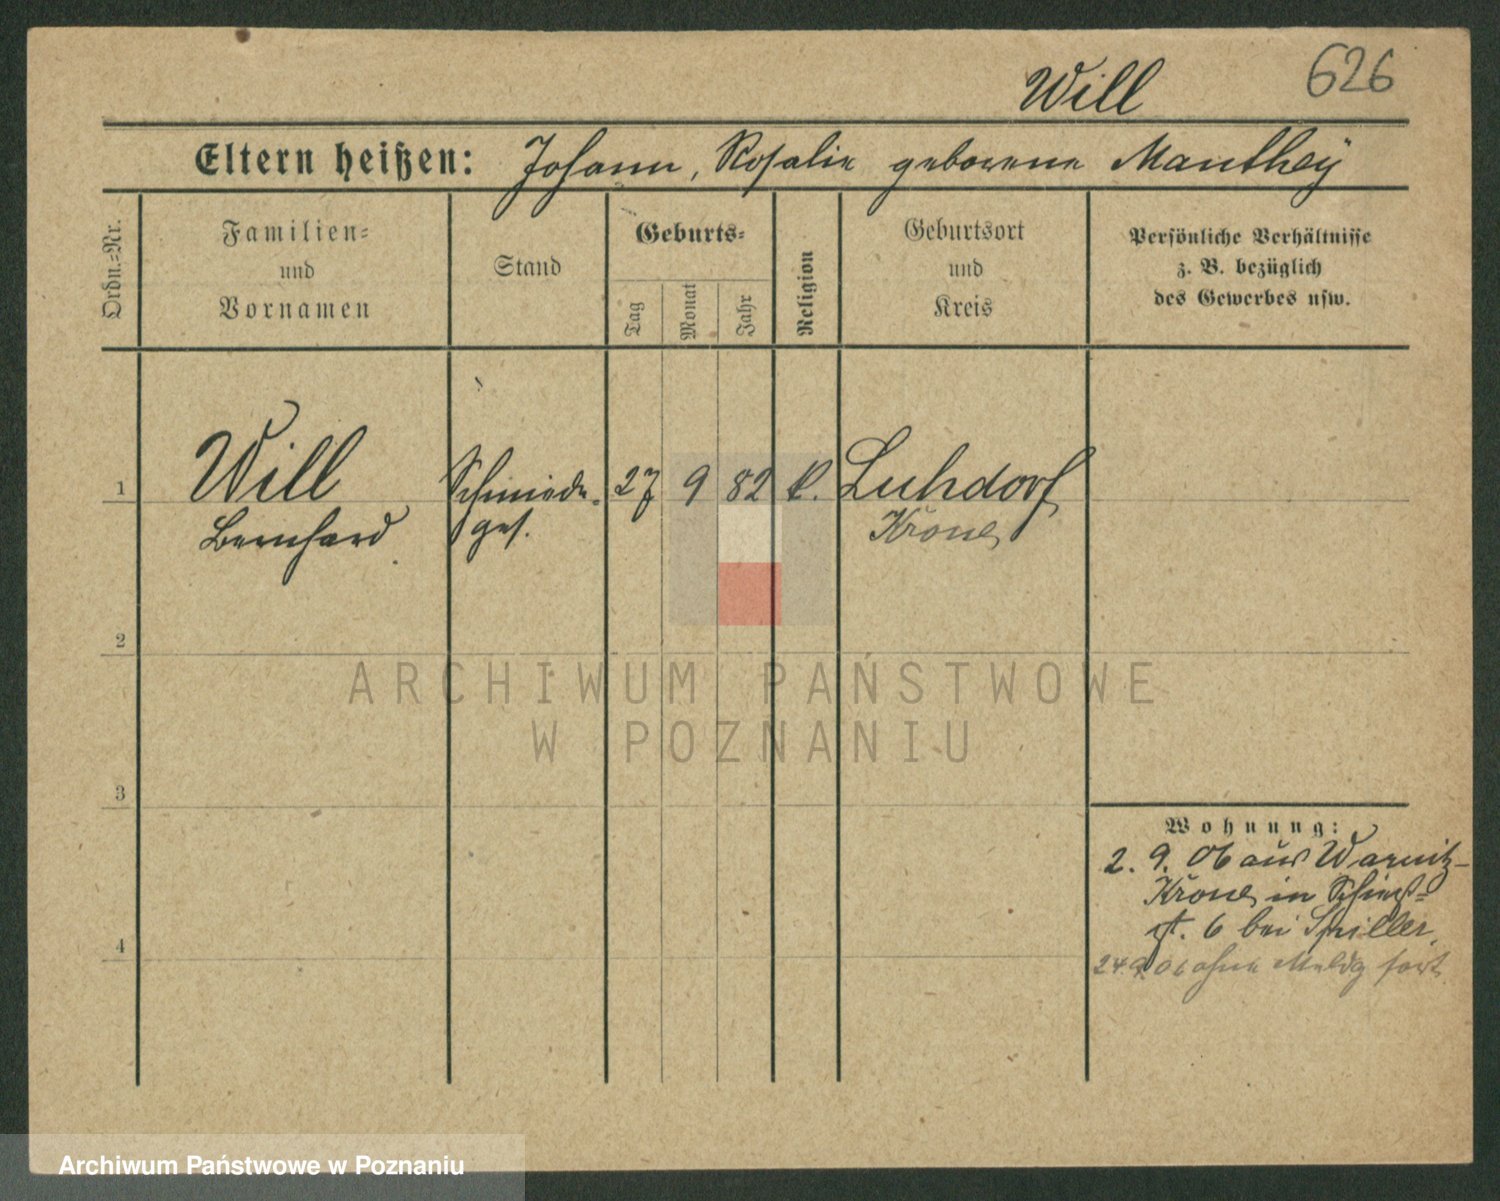 Will 626
Eltern heißen: Johann, Rosalie geborene Manthey
Ordn.=Nr.
Familien=
und
Vornamen
Stand
Geburts=
Tag
Monat
Jahr
Religion
Geburtsort
und
Kreis
Persönliche Verhältnisse
z. B. bezüglich
des Gewerbes usw.
1 Will Schmiede- 27 9 82 k. Luhdorf
Bernhard ges. Krone
2
3
4
Wohnung:
2. 9. 06 aus Warnitz-
Krone in
st. 6 bei Spiller
24.9.06 ohne Meldg fort
ARCHIWUM PAŃSTWOWE
W POZNANIU
Archiwum Państwowe w Poznaniu